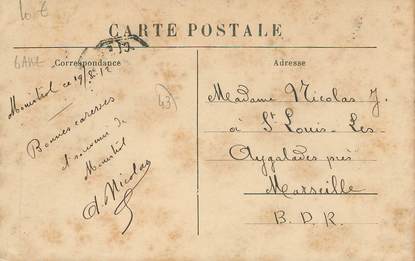 10 €
CARTE POSTALE
GARE
Correspondance
Adresse
Monistrol ce 19/8-12
Bonnes caresses
et souvenir de
Monistrol
A. Nicolas
(43)
Madame Nicolas J.
à St Louis-Les-
Aygalades près
Marseille
B. D. R.